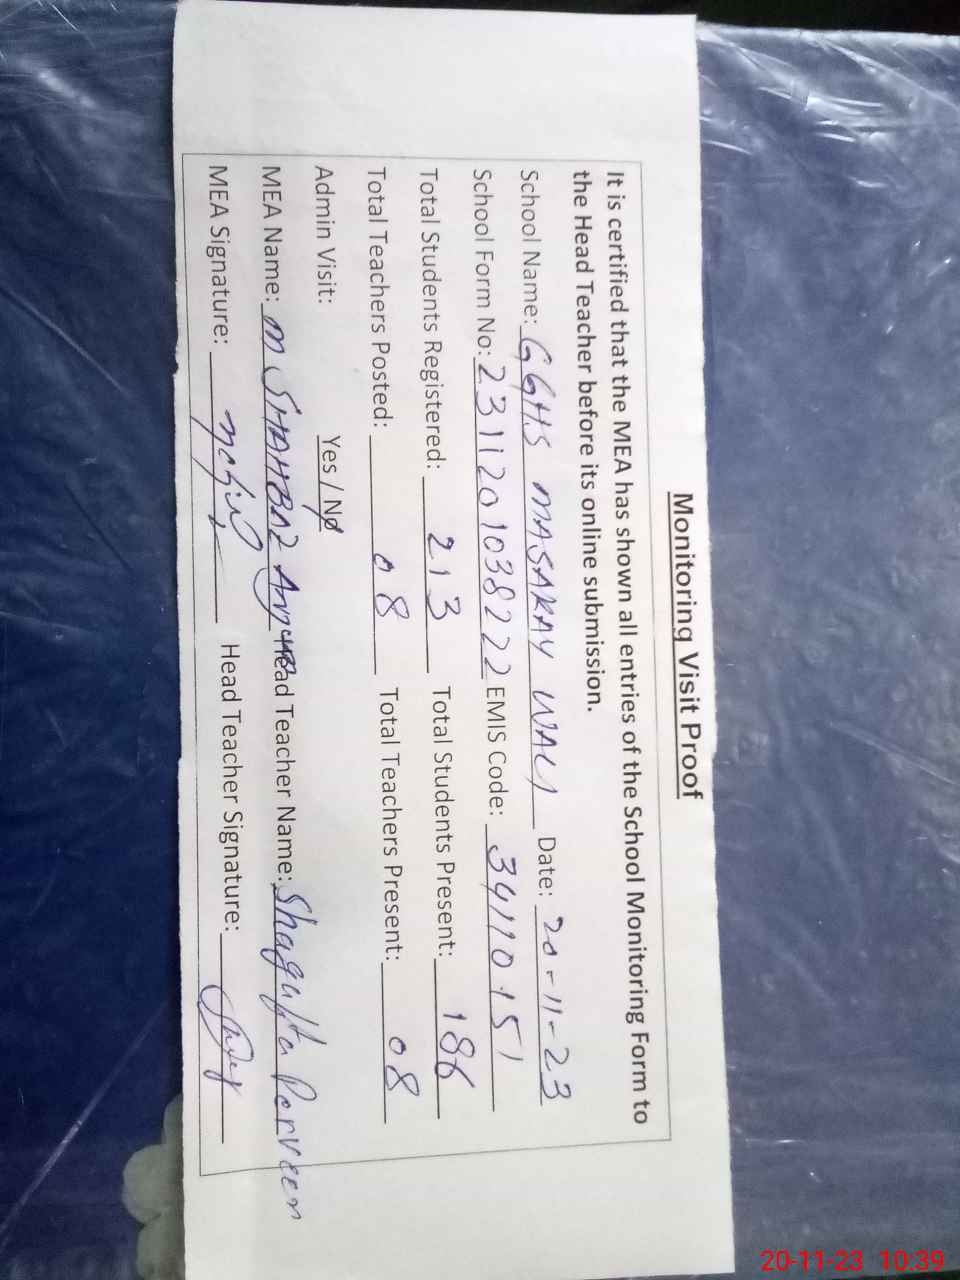 Monitoring Visit Proof
It is certified that the MEA has shown all entries of the School Monitoring Form to
the Head Teacher before its online submission.
School Name: GGHS MASARAY WALI Date: 20-11-23
School Form No: 2311201038222 EMIS Code: 34110151
Total Students Registered: 213 Total Students Present: 186
Total Teachers Posted: 08 Total Teachers Present: 08
Admin Visit: Yes / No
MEA Name: M SHAHBAZ Head Teacher Name: Shagufta Parveen
MEA Signature: Head Teacher Signature:
20-11-23 10:39